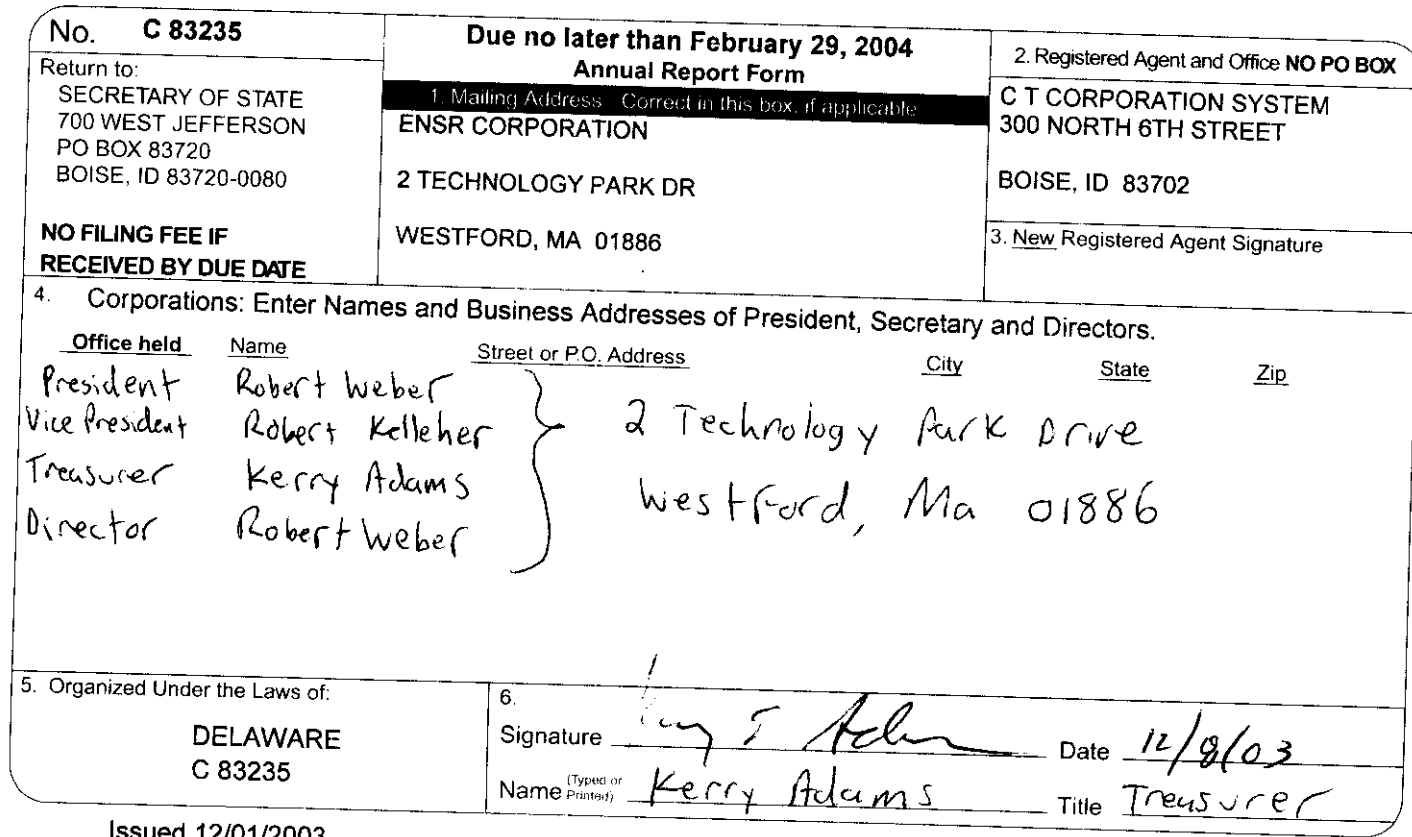 No. C 83235
Return to:
SECRETARY OF STATE
700 WEST JEFFERSON
PO BOX 83720
BOISE, ID 83720-0080
NO FILING FEE IF
RECEIVED BY DUE DATE
Due no later than February 29, 2004
Annual Report Form
1. Mailing Address Correct in this box, if applicable
ENSR CORPORATION
2 TECHNOLOGY PARK DR
WESTFORD, MA 01886
2. Registered Agent and Office NO PO BOX
C T CORPORATION SYSTEM
300 NORTH 6TH STREET
BOISE, ID 83702
3. New Registered Agent Signature
4. Corporations: Enter Names and Business Addresses of President, Secretary and Directors.
Office held Name Street or P.O. Address City State Zip
President Robert Weber
Vice President Robert Kelleher
Treasurer Kerry Adams
Director Robert Weber
2 Technology Park Drive
Westford, Ma 01886
5. Organized Under the Laws of:
DELAWARE
C 83235
6.
Signature Date 12/8/03
Name (Typed or Printed) Kerry Adams Title Treasurer
Issued 12/01/2003